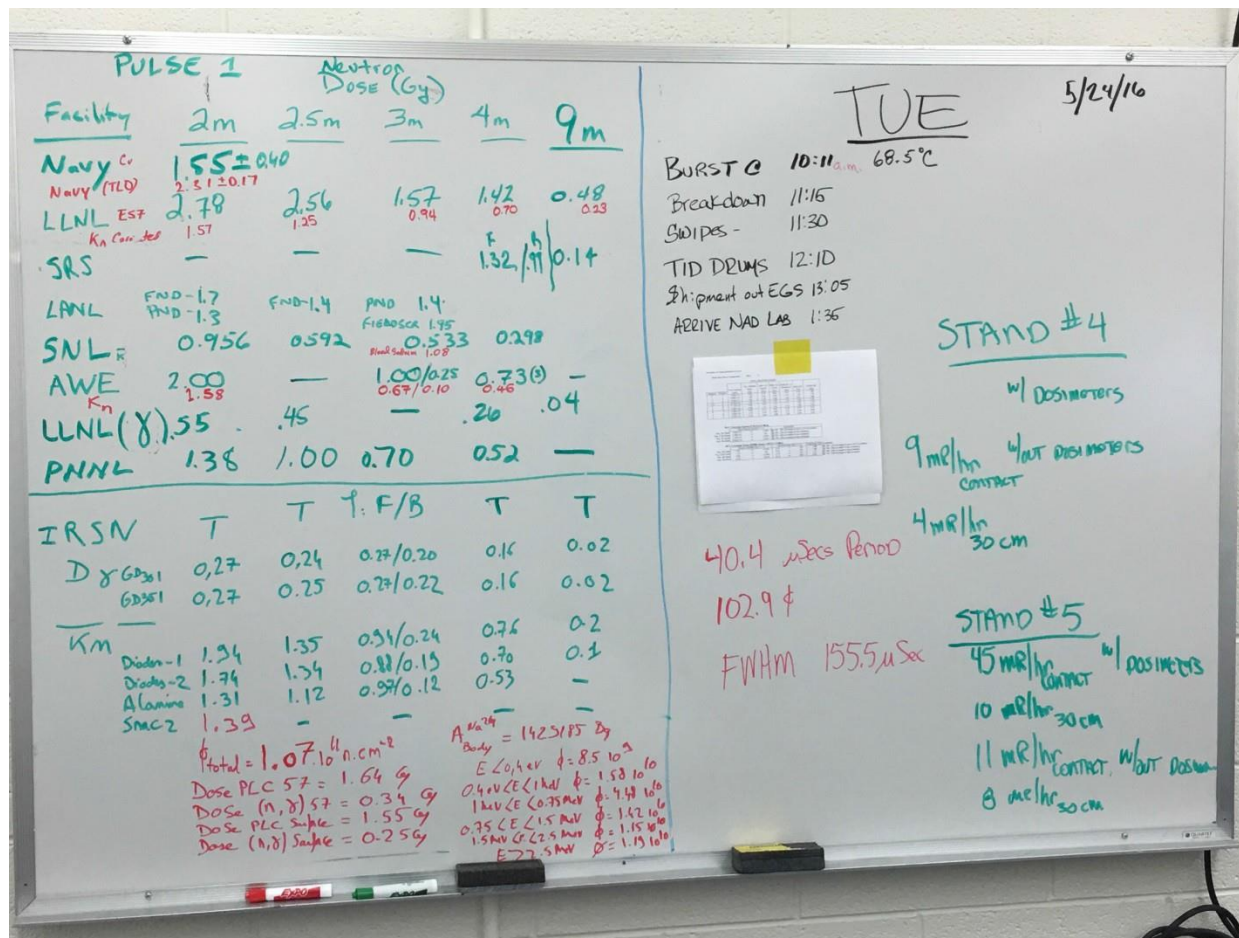 PULSE 1 Neutron
DOSE (Gy)
Facility 2m 2.5m 3m 4m 9m
Navy Cr 1.55 ± 0.40
Navy (TLD) 2.31±0.17
LLNL Es7 2.78 2.56 1.57 1.42 0.48
Kn 1.57 1.25 0.94 0.70 0.23
SRS — — — 1.32/.91 0.14
LANL FND-1.7 FND-1.4 PND 1.4
PND-1.3 1.95
SNL K 0.956 0.592 0.533 0.298
Blood Sodium 1.08
AWE 2.00 — 1.00/0.25 0.73(s) —
Kn 1.58 0.67/0.10 0.46
LLNL(γ) .55 .45 — .26 .04
PNNL 1.38 1.00 0.70 0.52 —
IRSN T T T: F/B T T
Dγ GD301 0,27 0,24 0.27/0.20 0.16 0.02
GD351 0,27 0.25 0.27/0.22 0.16 0.02
Km
Diodes-1 1.94 1.35 0.94/0.24 0.76 0.2
Diodes-2 1.74 1.34 0.88/0.19 0.70 0.1
Alanine 1.31 1.12 0.97/0.12 0.53 —
Snac2 1.39 — — — —
ϕ total = 1.07.10¹¹ n.cm⁻²
Dose PLC 57 = 1.64 Gy
Dose (n,γ) 57 = 0.34 Gy
Dose PLC Surface = 1.55 Gy
Dose (n,γ) Surface = 0.25 Gy
A Na24 Body = 1425185 Bq
E<0,4 eV ϕ = 8.5 10⁹
0.4eV<E<1keV ϕ = 1.58 10¹⁰
1keV<E<0.75MeV ϕ = 4.48 10¹⁰
0.75<E<1.5MeV ϕ = 1.42 10¹⁰
1.5MeV<E<2.5MeV ϕ = 1.15 10¹⁰
E>2.5MeV ϕ = 1.19 10¹⁰
TUE 5/24/16
BURST @ 10:11 a.m. 68.5°C
Breakdown 11:15
Swipes - 11:30
TID DRUMS 12:10
Shipment out EGS 13:05
ARRIVE NAD LAB 1:36
40.4 μSecs Period
102.9 ¢
FWHM 155.5 μSec
STAND #4
w/ DOSIMETERS
9 mR/hr CONTACT w/out DOSIMETERS
4 mR/hr 30 cm
STAND #5
45 mR/hr CONTACT w/ DOSIMETERS
10 mR/hr 30 cm
11 mR/hr CONTACT, w/out
8 mR/hr 30 cm
EXPO